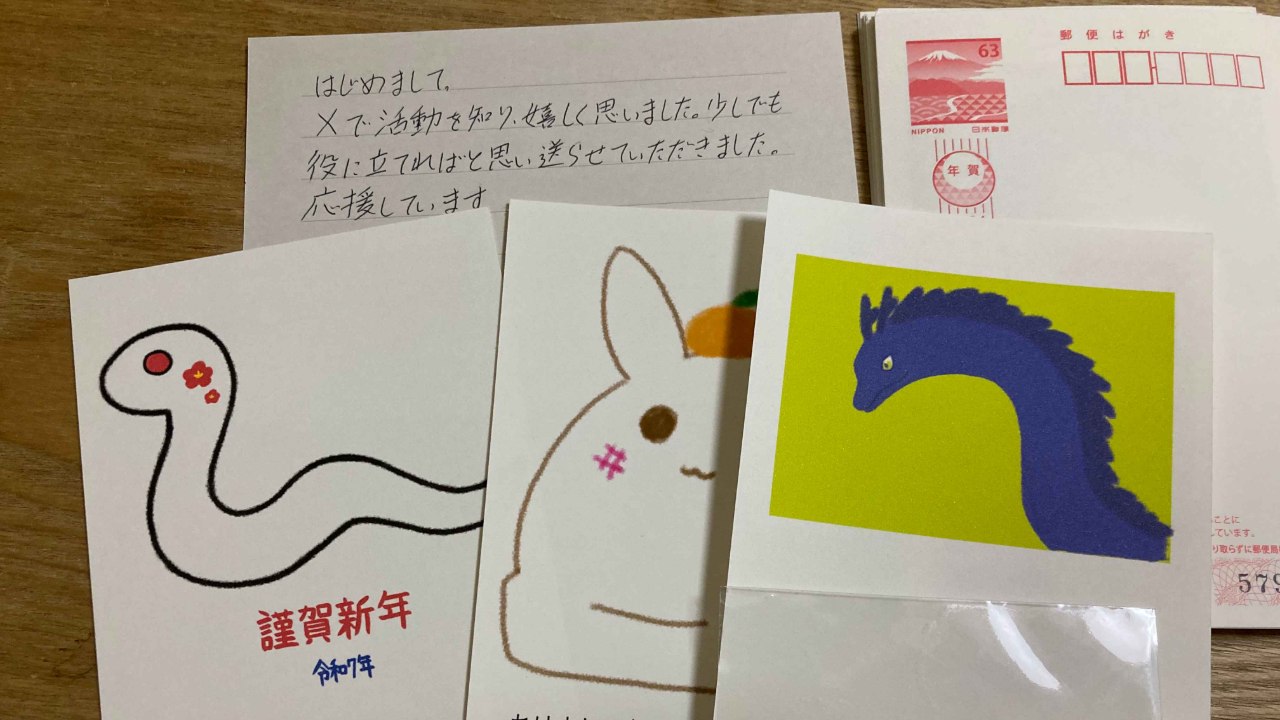 はじめまして。
Xで活動を知り、嬉しく思いました。少しでも
役に立てればと思い送らせていただきました。
応援しています
63
NIPPON 日本郵便
年賀
郵便はがき
謹賀新年
令和7年
ことに
ています。
り取らずに郵便局
579